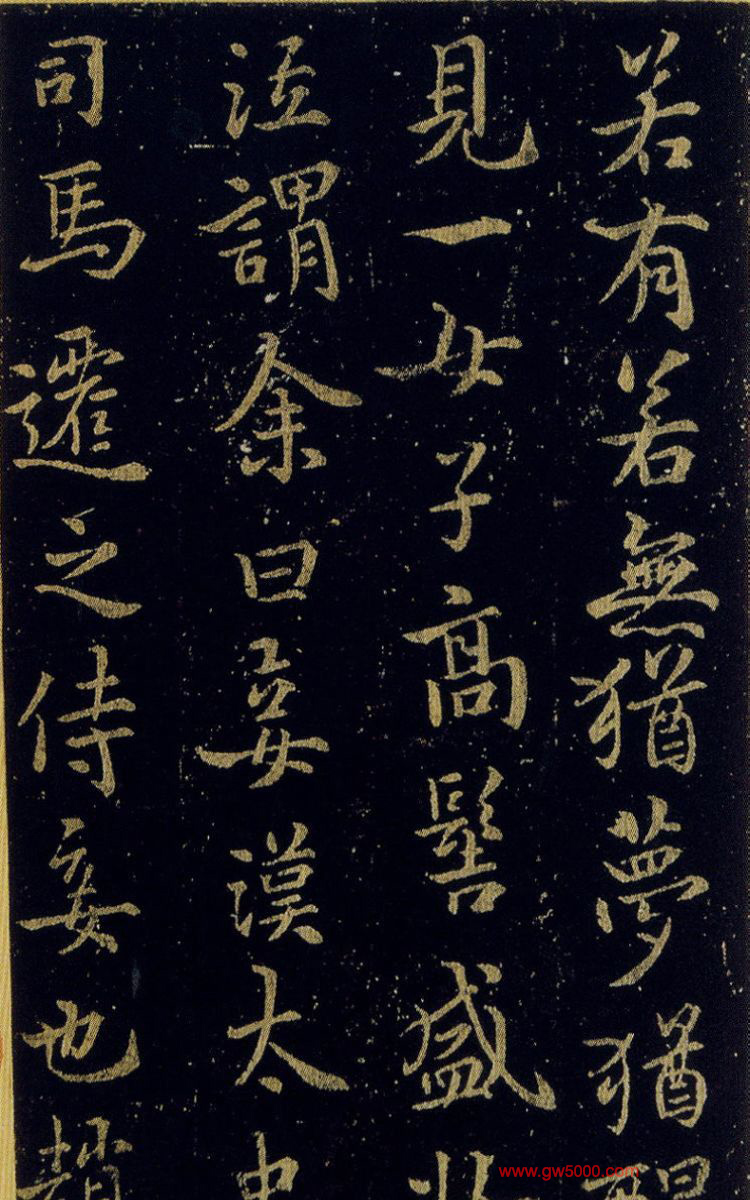 若有若無猶夢猶醒
見一女子高髻盛妝
泣謂余曰妾漢太史
司馬遷之侍妾也趙
www.gw5000.com